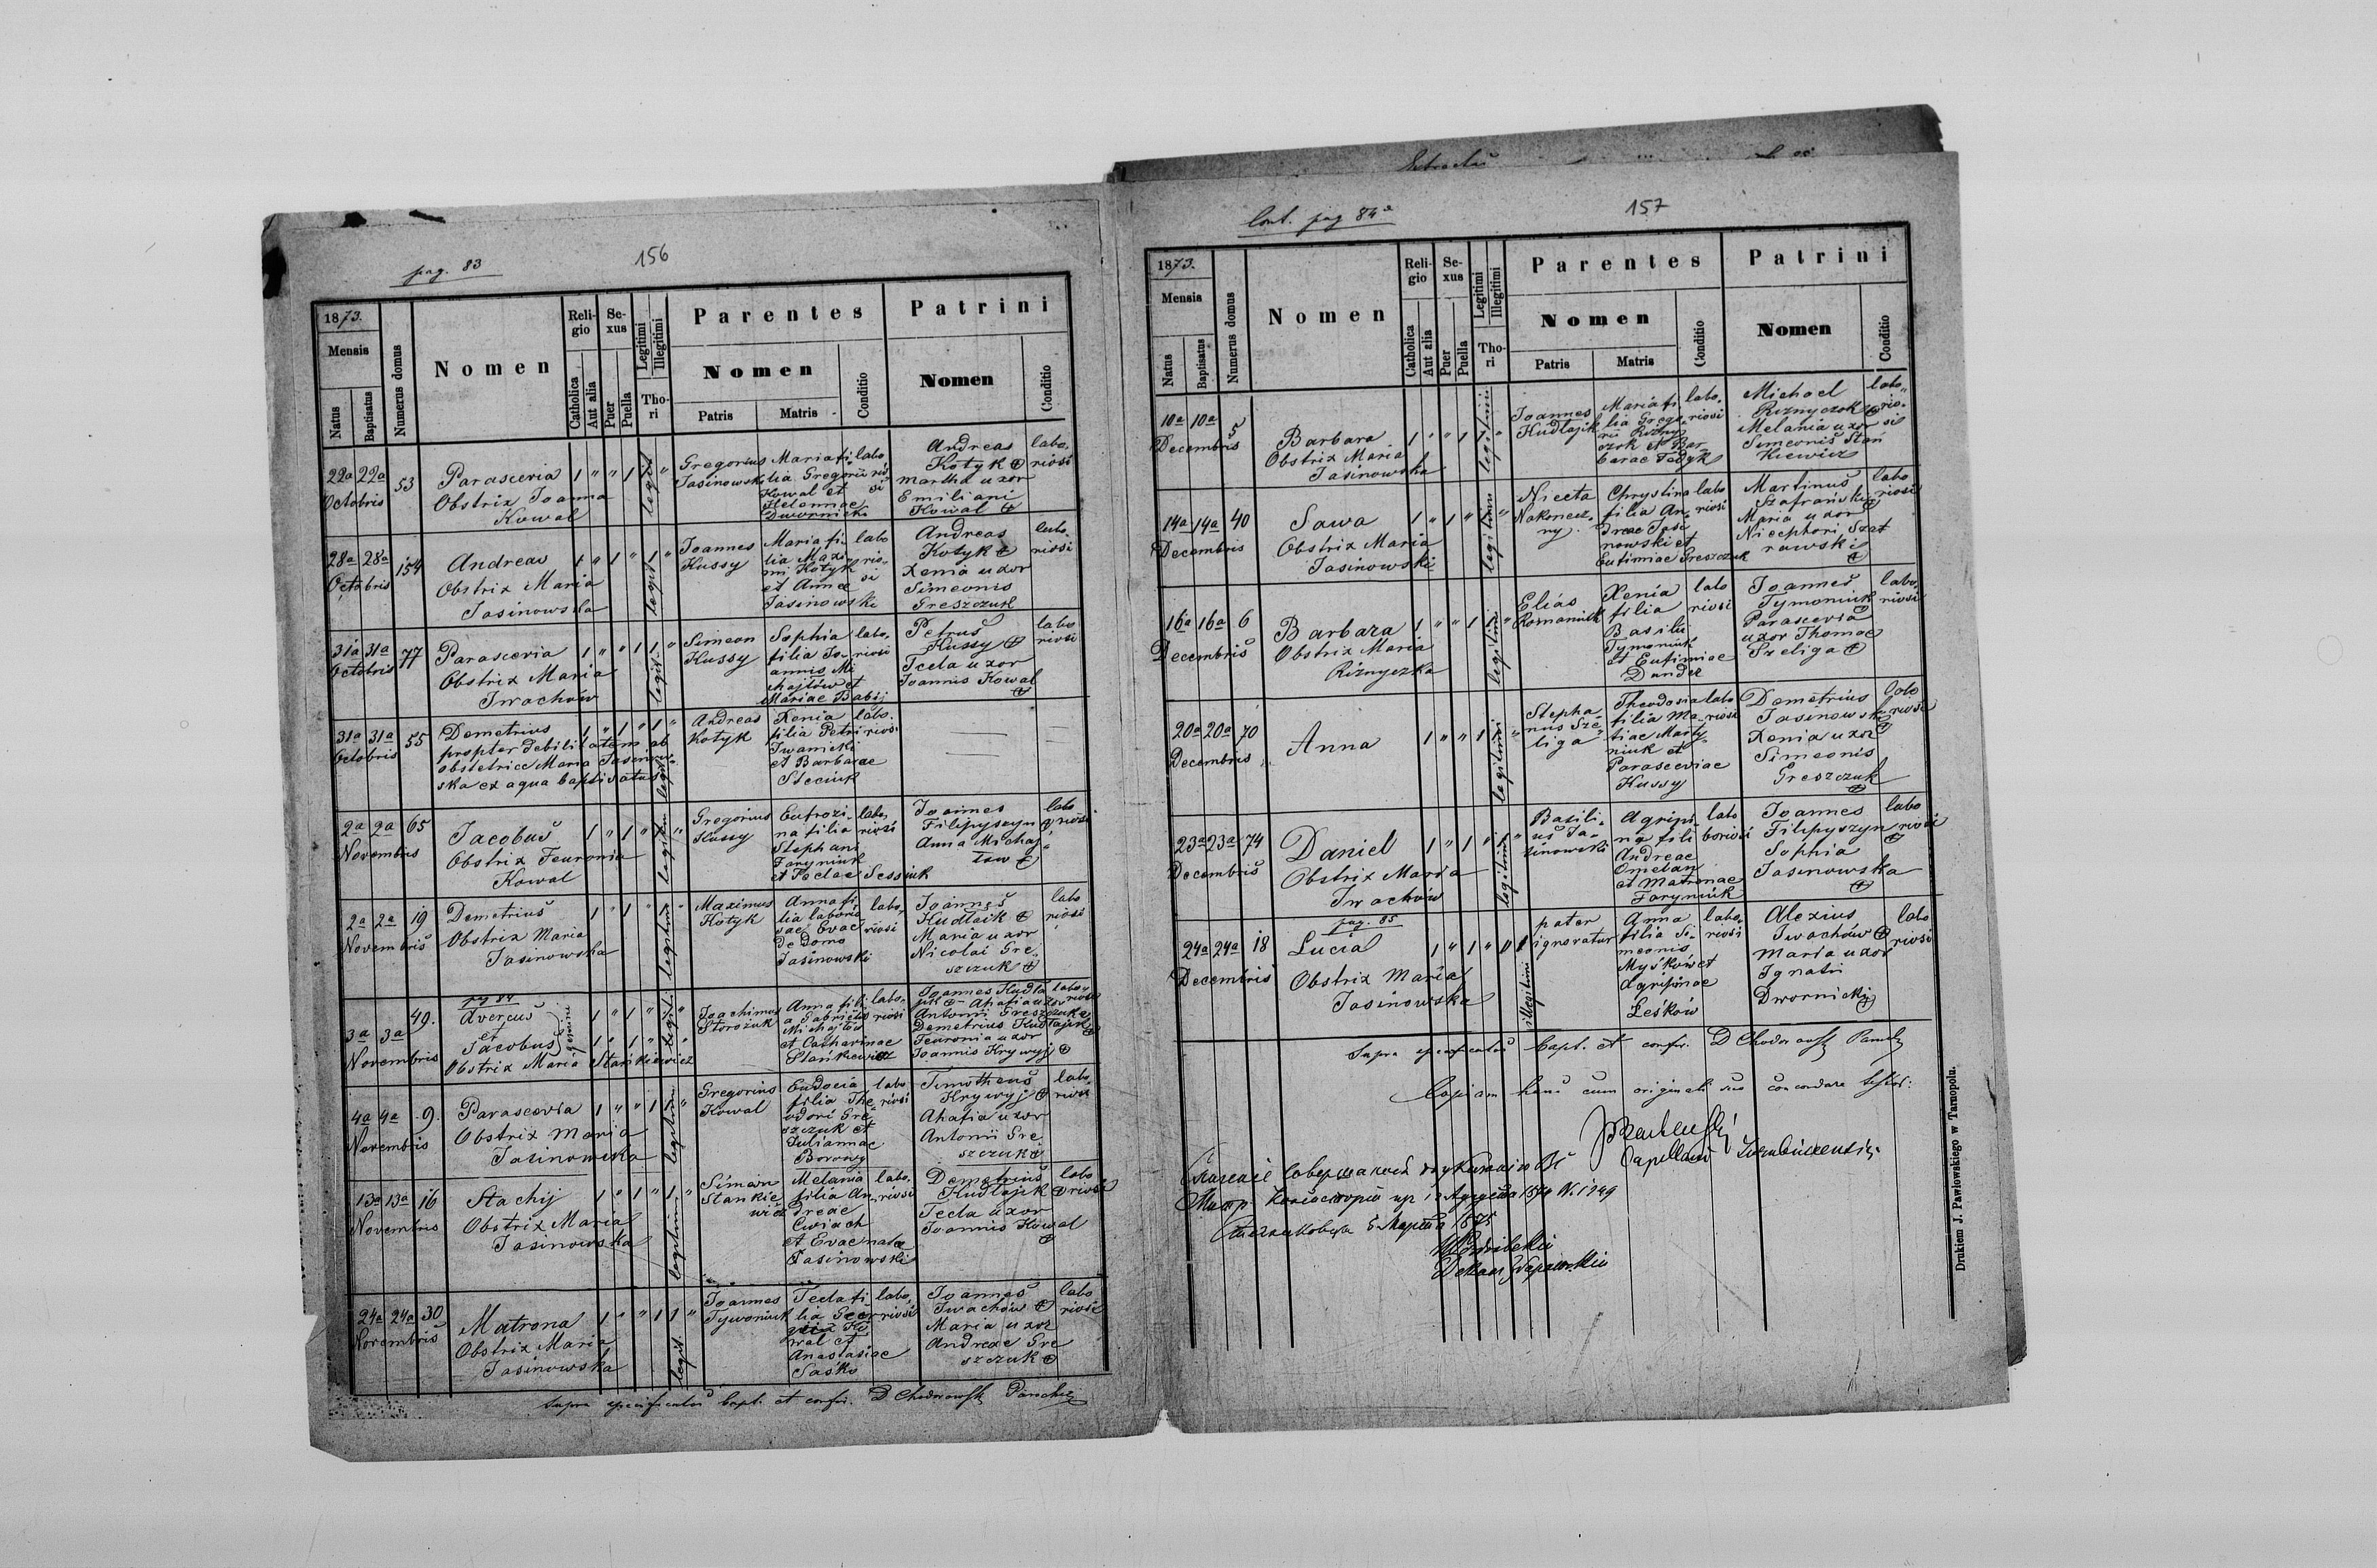 pag. 83
156
1873.
Mensis
Natus
Baptisatus
Numerus domus
Nomen
Religio
Catholica
Aut alia
Sexus
Puer
Puella
Legitimi
Illegitimi
Thori
Parentes
Nomen
Patris
Matris
Conditio
Patrini
Nomen
Conditio
22a 22a 53
Octobris
Parascevia
Obstrix Joanna
Kowal
1 " " 1 1 "
legit
Gregorius
Jasinowski
Maria fi
lia Gregorii
Kowal et
Helennae
Dwornicki
labo
rio
si
Andreas
Kotyk
Martha uxor
Emiliani
Kowal
labo
riosi
28a 28a 154
Octobris
Andreas
Obstrix Maria
Jasinowska
1 " 1 " 1 "
legit
Joannes
Kussy
Maria fi-
lia Maxi
mi Kotyk
et Annae
Jasinowski
labo
rio
si
Andreas
Kotyk
Xenia uxor
Simeonis
Greszczuk
labo
riosi
31a 31a 77
Octobris
Parascevia
Obstrix Maria
Iwachów
1 " " 1 1 "
legit
Simeon
Kussy
Sophia
filia Jo-
annis Mi
chajlów et
Mariae Babij
labo
riosi
Petrus
Kussy
Tecla uxor
Joannis Kowal
labo
riosi
31a 31a 55
Octobris
Demetrius
propter debilitatem ab
obstetrice Maria Jasinow
ska ex aqua baptisatus
1 " 1 " 1 "
legit
Andreas
Kotyk
Xenia
filia Petri
Iwanicki
et Barbarae
Steciuk
labo
riosi
2a 2a 65
Novembris
Jacobus
Obstrix Feuronia
Kowal
1 " 1 " 1 "
legitim
Gregorius
Kussy
Eufrozi-
na filia
Stephani
Faryniuk
et Teclae Sessiuk
labo
riosi
Joannes
Filipyszyn
Anna Michaj
low
labo
riosi
2a 2a 19
Novembris
Demetrius
Obstrix Maria
Jasinowska
1 " 1 "
legitim
Maximus
Kotyk
Anna fi
lia laborio
sae Evae
de Domo
Jasinowski
labo
riosi
Joannes
Hudlaik
Maria uxor
Nicolai Gre
szczuk
labo
riosi
pag 84
3a 3a 49.
Novembris
Avercus
et
Jacobus
gemini
Obstrix Maria Stankiewicz
1 " 1 "
1 " 1 "
legiti
Joachimus
Storozuk
Anna fili
a Gabrielis
Michajlów
et Catharinae
Stankiewicz
labo
riosi
Joannes Hudla
jik Ahafia uxor
Antonii Greszczuk
Demetrius Hudlajik
Feuronia uxor
Joannis Krywyj
labo
riosi
4a 4a 9.
Novembris
Parascevia
Obstrix Maria
Jasinowska
1 " " 1 1 "
legitim
Gregorius
Kowal
Eudocia
filia The
odori Gre
szczuk et
Juliannae
Borowy
labo
riosi
Timotheus
Krywyj
Ahafia uxor
Antonii Gre
szczuk
labo
riosi
13a 13a 16
Novembris
Stachij
Obstrix Maria
Jasinowska
1 " 1 " 1 "
legitim
Simeon
Stankie
wicz
Melania
filia An
dreae
Cwiach
et Evae natae
Jasinowski
labo
riosi
Demetrius
Hudlajik
Tecla uxor
Joannis Kowal
labo
riosi
24a 24a 30
Novembris
Matrona
Obstrix Maria
Jasinowska
1 " " 1 1 "
legit.
Joannes
Tywoniuk
Tecla fi
lia Geor
gii Ko
wal et
Anastasiae
Sasko
labo
riosi
Joannes
Iwachów
Maria uxor
Andreae Gre
szczuk
labo
riosi
Supra specificatos bapt. et confir. D Chodorowski
Cont. pag 84
157
1873.
Mensis
Natus
Baptisatus
Numerus domus
Nomen
Religio
Catholica
Aut alia
Sexus
Puer
Puella
Legitimi
Illegitimi
Thori
Parentes
Nomen
Patris
Matris
Conditio
Patrini
Nomen
Conditio
10a 10a 5
Decembris
Barbara
Obstrix Maria
Jasinowska
1 " " 1 1 "
legitimi
Joannes
Hudlajik
Maria fi
lia Grego
rii Rizny
czok et Bar
barae Fedyk
labo
riosi
Michael
Riznyczok
Melania uxor
Simeonis Stan
kiewicz
labo
rio
si
14a 14a 40
Decembris
Sawa
Obstrix Maria
Jasinowski
1 " 1 " 1 "
legitimi
Niceta
Nakonecz
ny
Chrystina
filia An
dreae Jasi
nowski et
Eutimiae Greszczuk
labo
riosi
Martinus
Szafrański
Maria uxor
Nicephori Szaf
rawski
labo
riosi
16a 16a 6
Decembris
Barbara
Obstrix Maria
Riznyczka
1 " " 1 1 "
legitimi
Elias
Romaniuk
Xenia
filia
Basilii
Tymoniuk
et Eutimiae
Dunder
labo
riosi
Joannes
Tymoniuk
Parascevia
uxor Thomae
Szeliga
labo
riosi
20a 20a 70
Decembris
Anna
1 " " 1 1 "
legitimi
Stepha
nus Sze
liga
Theodosia
filia Ma
tiae Marty
niuk et
Parasceviae
Kussy
labo
riosi
Demetrius
Jasinowski
Xenia uxor
Simeonis
Greszczuk
labo
riosi
23a 23a 74
Decembris
Daniel
Obstrix Maria
Iwachów
1 " 1 " 1 "
legitimi
Basili
us Ja
sinowski
Agripi
na fili
Andreae
Omelan
et Matronae
Faryniuk
labo
boriosi
Joannes
Filipyszyn
Sophia
Jasinowska
labo
riosi
pag. 85
24a 24a 18
Decembris
Lucia
Obstrix Maria
Jasinowska
1 " 1 " " 1
illegitimi
pater
ignoratur
Anna
filia Si
meonis
Myśków et
Agripinae
Leśków
labo
riosi
Alexius
Iwachów
Maria uxor
Ignatii
Dwornicki
labo
riosi
Supra specificatos bapt. et confir. D Chodorowski
Copiam hanc cum originali suo concordare testor:
Capellanus
5 Марта 1875
Drukiem J. Pawłowskiego w Tarnopolu.